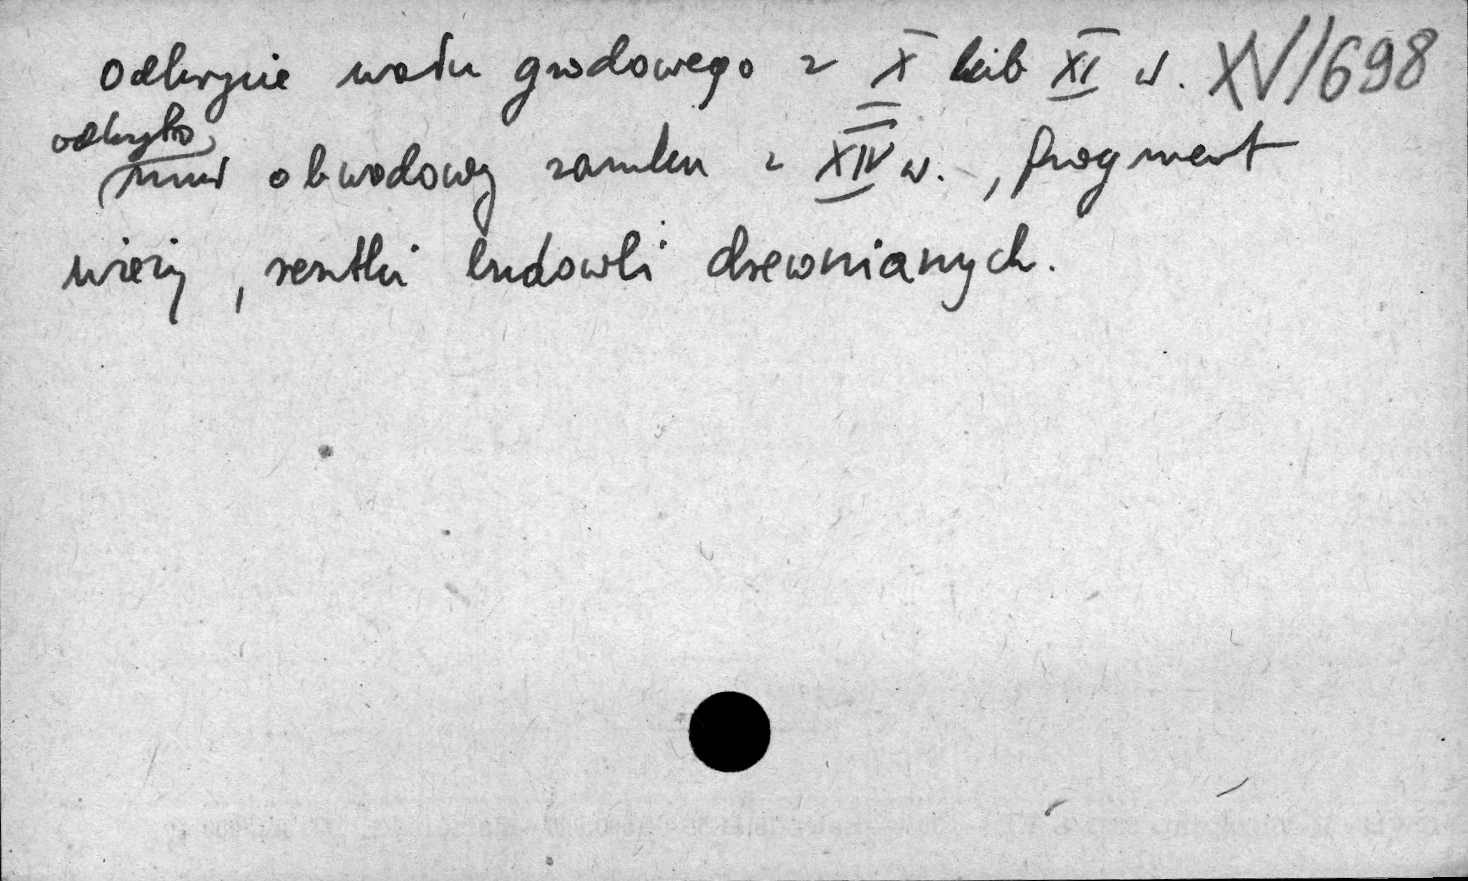 Odkrycie wału grodowego z X lub XI w. XV/698
odkryto
mur obwodowy zamku z XIV w., fragment
wieży, resztki budowli drewnianych.